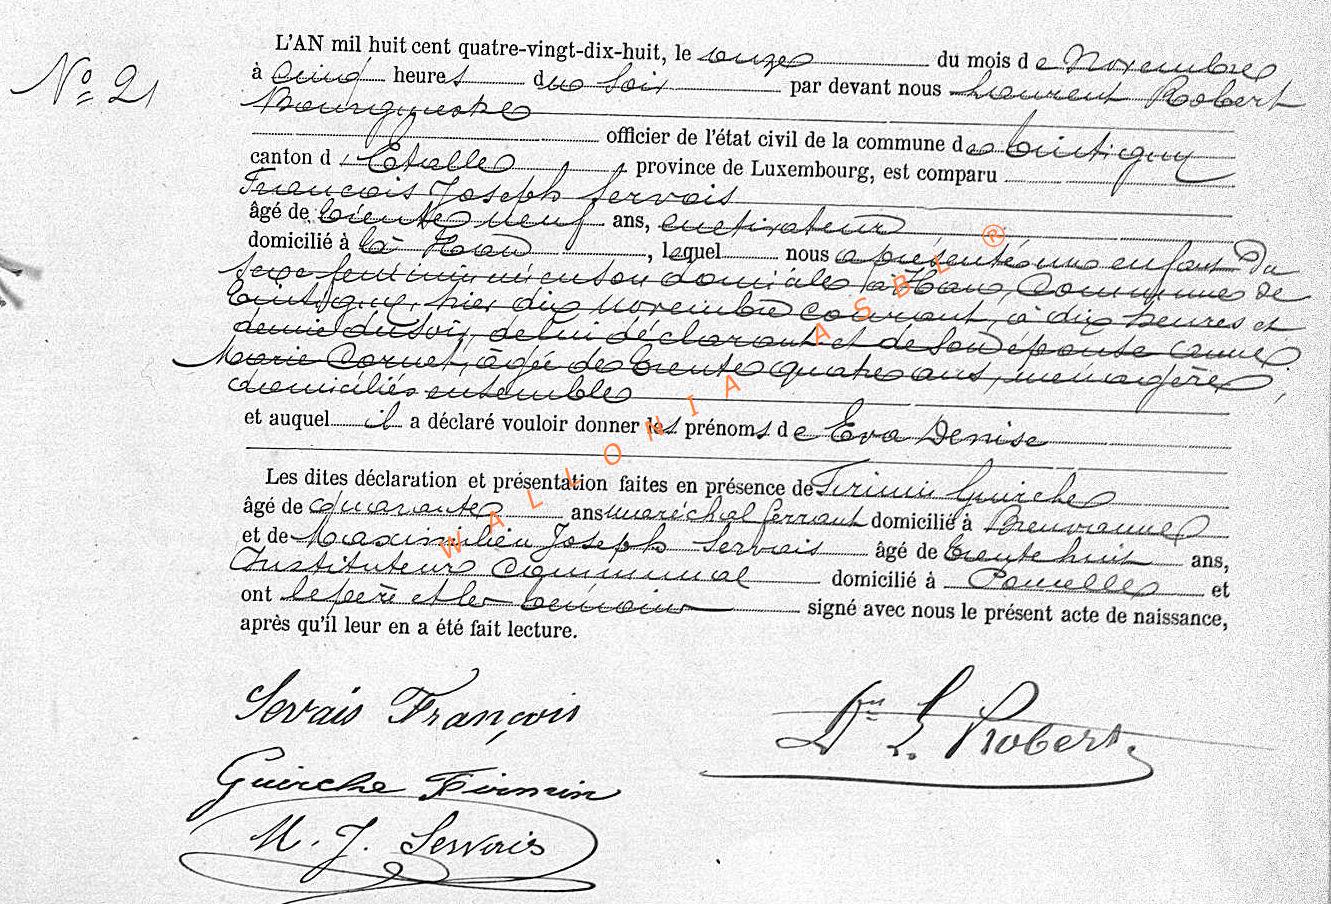 N° 21
L'AN mil huit cent quatre-vingt-dix-huit, le onze du mois de Novembre
à cinq heures du soir par devant nous Laurent Robert
Bourgmestre
officier de l'état civil de la commune de Tintigny
canton d'Etalle, province de Luxembourg, est comparu
François Joseph Servais
âgé de trente neuf ans, cultivateur
domicilié à la Han, lequel nous a présenté un enfant du
sexe féminin, né en son domicile à Han, Commune de
Tintigny, hier dix novembre courant, à dix heures et
demie du soir, de lui déclarant et de son épouse
Marie Cornet, âgée de trente quatre ans, ménagère,
domiciliés ensemble
et auquel il a déclaré vouloir donner les prénoms de Eva Denise
Les dites déclaration et présentation faites en présence de Firmin Guirche
âgé de quarante ans maréchal ferrant domicilié à Breuvanne
et de Maximilien Joseph Servais âgé de trente huit ans,
Instituteur Communal domicilié à Poncelle et
ont le père et les témoins signé avec nous le présent acte de naissance,
après qu'il leur en a été fait lecture.
Servais François
Dr L. Robert.
Guirche Firmin
M. J. Servais
WALLONIA ASBL ®